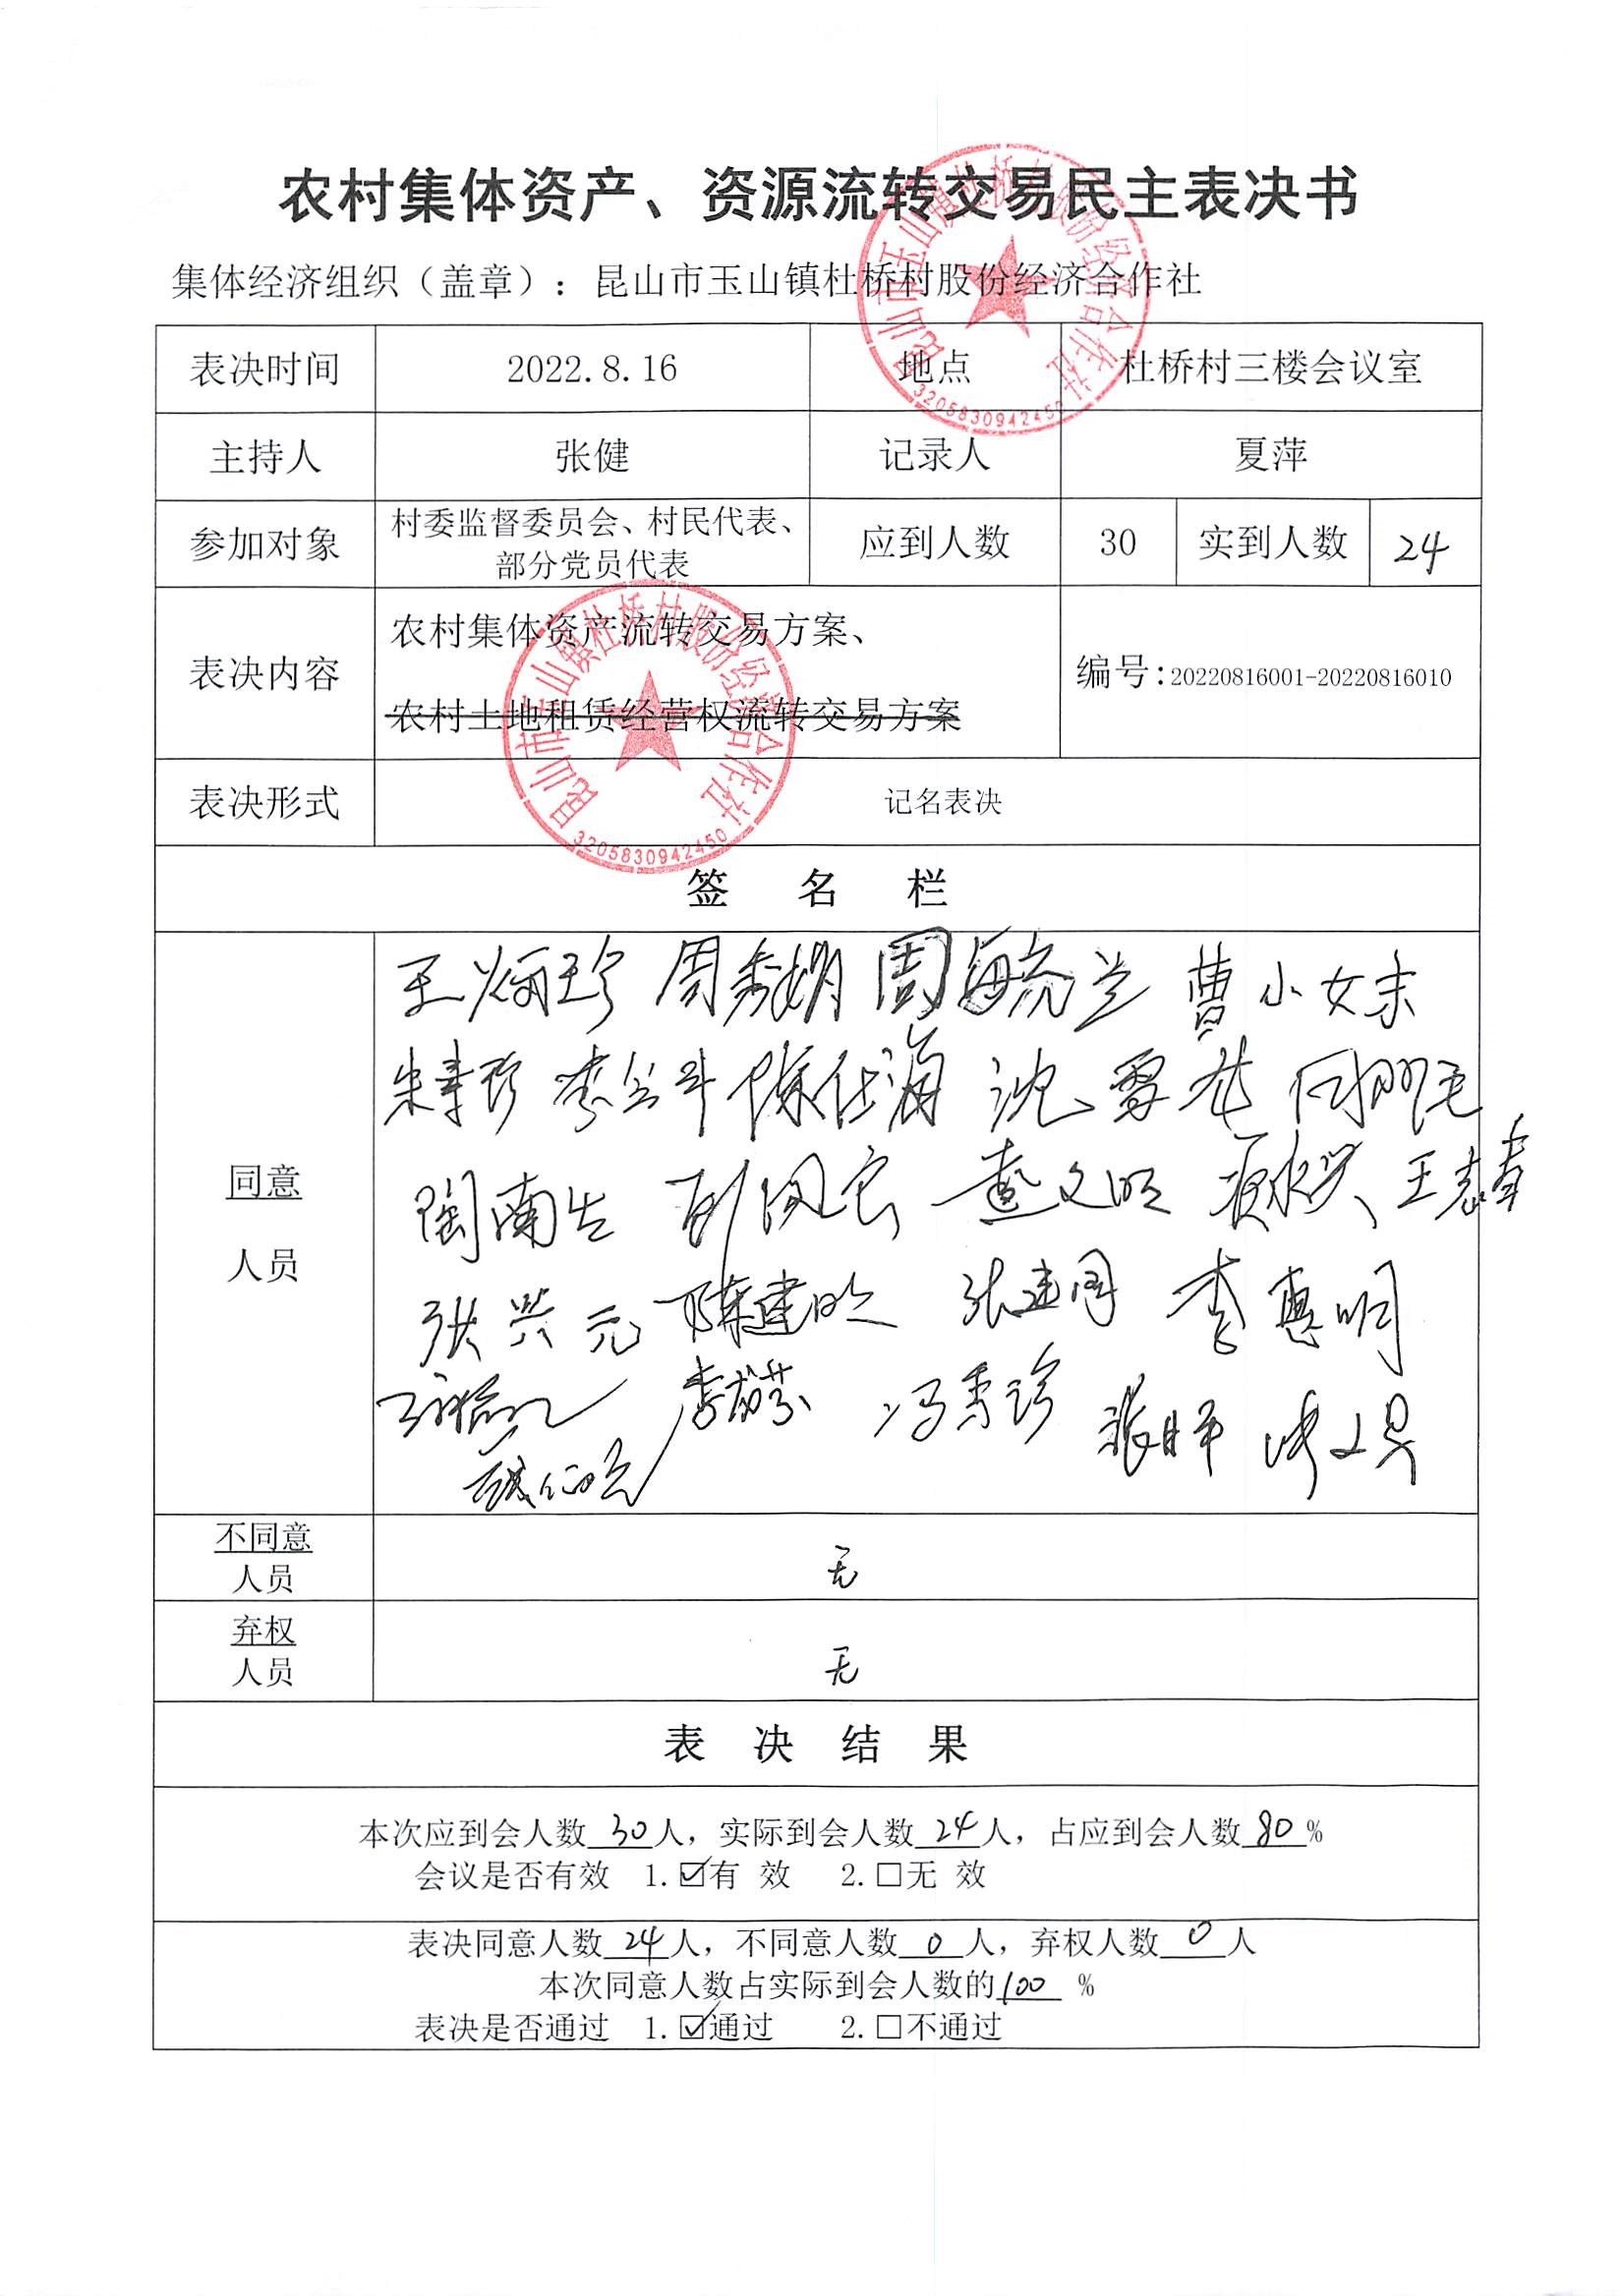 农村集体资产、资源流转交易民主表决书
集体经济组织（盖章）：昆山市玉山镇杜桥村股份经济合作社
昆山市玉山镇杜桥村股份经济合作社
3205830942450
表决时间 2022.8.16 地点 杜桥村三楼会议室
主持人 张健 记录人 夏萍
参加对象 村委监督委员会、村民代表、 应到人数 30 实到人数 24
部分党员代表
表决内容 农村集体资产流转交易方案、 编号:20220816001-20220816010
农村土地租赁经营权流转交易方案
昆山市玉山镇杜桥村股份经济合作社
3205830942450
表决形式 记名表决
签 名 栏
同意
人员
王炳珍 周秀娟 周毓兰 曹小女
沈雪花
陶南生 王志春
张兴元 陈建明 张建国 李惠明
冯秀珍
不同意
人员 无
弃权
人员 无
表 决 结 果
本次应到会人数30人，实际到会人数24人，占应到会人数80%
会议是否有效 1.☑有 效 2.□无 效
表决同意人数24人，不同意人数0人，弃权人数0人
本次同意人数占实际到会人数的100 %
表决是否通过 1.☑通过 2.□不通过